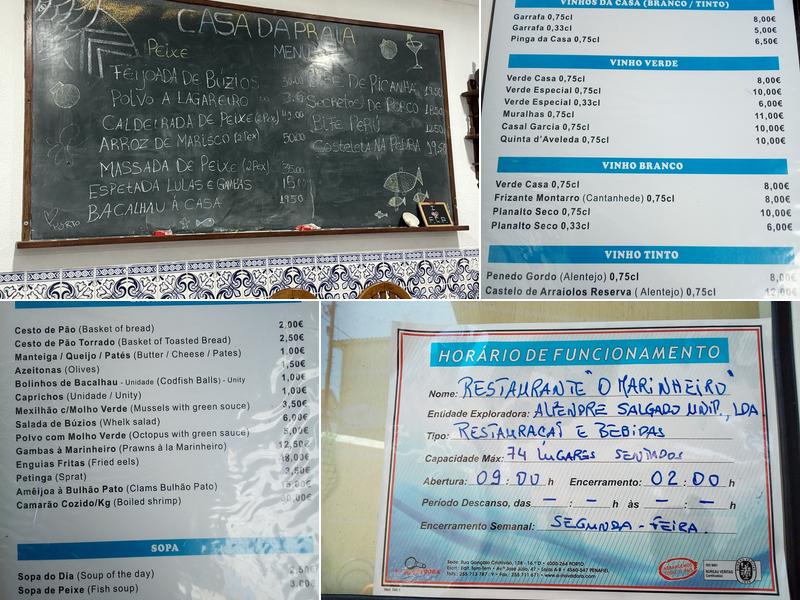 CASA DA PRAIA
PEIXE
MENU
FEIJOADA DE BÚZIOS
POLVO A LAGAREIRO
CALDEIRADA DE PEIXE (2 Pex) 49.00
ARROZ DE MARISCO (2 Pex) 50.00
MASSADA DE PEIXE (2 Pex) 35.00
ESPETADA LULAS E GAMBAS 15.00
BACALHAU À CASA 19.50
DE PICANHA 19.50
SECRETOS DE PORCO 18.50
BIFE PERÚ 12.50
COSTELETA NA PEDRA 19.50
PORTO
VINHOS DA CASA (BRANCO / TINTO)
Garrafa 0,75cl 8,00€
Garrafa 0,33cl 5,00€
Pinga da Casa 0,75cl 6,50€
VINHO VERDE
Verde Casa 0,75cl 8,00€
Verde Especial 0,75cl 10,00€
Verde Especial 0,33cl 6,00€
Muralhas 0,75cl 11,00€
Casal Garcia 0,75cl 10,00€
Quinta d'Aveleda 0,75cl 10,00€
VINHO BRANCO
Verde Casa 0,75cl 8,00€
Frizante Montarro (Cantanhede) 0,75cl 8,00€
Planalto Seco 0,75cl 10,00€
Planalto Seco 0,33cl 6,00€
VINHO TINTO
Penedo Gordo (Alentejo) 0,75cl 8,00€
Castelo de Arraiolos Reserva ( Alentejo) 0,75cl 12,00€
Cesto de Pão (Basket of bread) 2,00€
Cesto de Pão Torrado (Basket of Toasted Bread) 2,50€
Manteiga / Queijo / Patés (Butter / Cheese / Pates) 1,00€
Azeitonas (Olives) 1,50€
Bolinhos de Bacalhau - Unidade (Codfish Balls) - Unity 1,00€
Caprichos (Unidade / Unity) 1,00€
Mexilhão c/Molho Verde (Mussels with green sauce) 3,50€
Salada de Búzios (Whelk salad) 6,00€
Polvo com Molho Verde (Octopus with green sauce) 5,00€
Gambas à Marinheiro (Prawns à la Marinheiro) 12,50€
Enguias Fritas (Fried eels) 18,00€
Petinga (Sprat) 3,50€
Amêijoa à Bulhão Pato (Clams Bulhão Pato)
Camarão Cozido/Kg (Boiled shrimp)
SOPA
Sopa do Dia (Soup of the day) 2,50€
Sopa de Peixe (Fish soup) 3,00€
HORÁRIO DE FUNCIONAMENTO
Nome: RESTAURANTE "O MARINHEIRO"
Entidade Exploradora: SALGADO UNIP., LDA
Tipo: RESTAURAÇAT E BEBIDAS
Capacidade Máx: 74 LUGARES SENTADOS
Abertura: 09:00 h Encerramento: 02:00 h
Período Descanso, das - : - h às - : - h
Encerramento Semanal: SEGUNDA-FEIRA
Sede: Rua Gonçalo Cristóvão, 128 - 16.º D • 4000-264 PORTO
BUREAU VERITAS
Certification